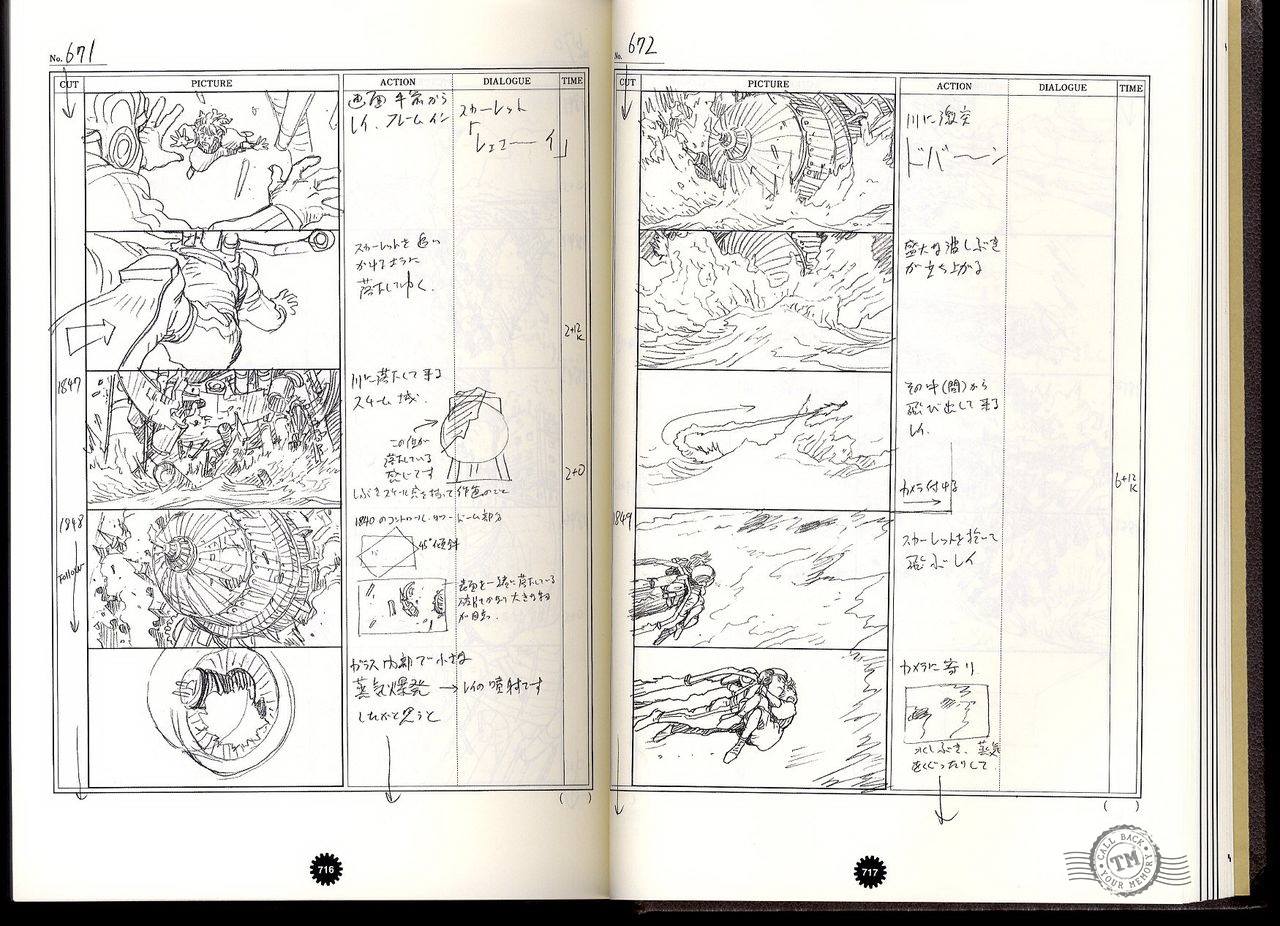 No. 671
CUT PICTURE ACTION DIALOGUE TIME
画面手前から
レイ、フレームイン
スカーレット
「レェエーーイ」
スカーレットを追い
かけるように
落下してゆく。
2+12K
1847
川に落下して来る
スチーム城。
この位が
落下している
感じです
2+0
1848
Follow
1840のコントロール・タワードーム部分
45°傾斜
ガラス内部で小さな
蒸気爆発→レイの噴射です
したかと思うと
( )
716
No. 672
CUT PICTURE ACTION DIALOGUE TIME
川に激突
ドバーーン
盛大な波しぶき
が立ち上がる
その中(間)から
飛び出して来る
レイ。
カメラ付ける
6+12K
1849
スカーレットを抱いて
飛ぶレイ
カメラに寄り
水しぶき、蒸気
をくぐったりして
( )
717
CALL BACK
TM
YOUR MEMORY